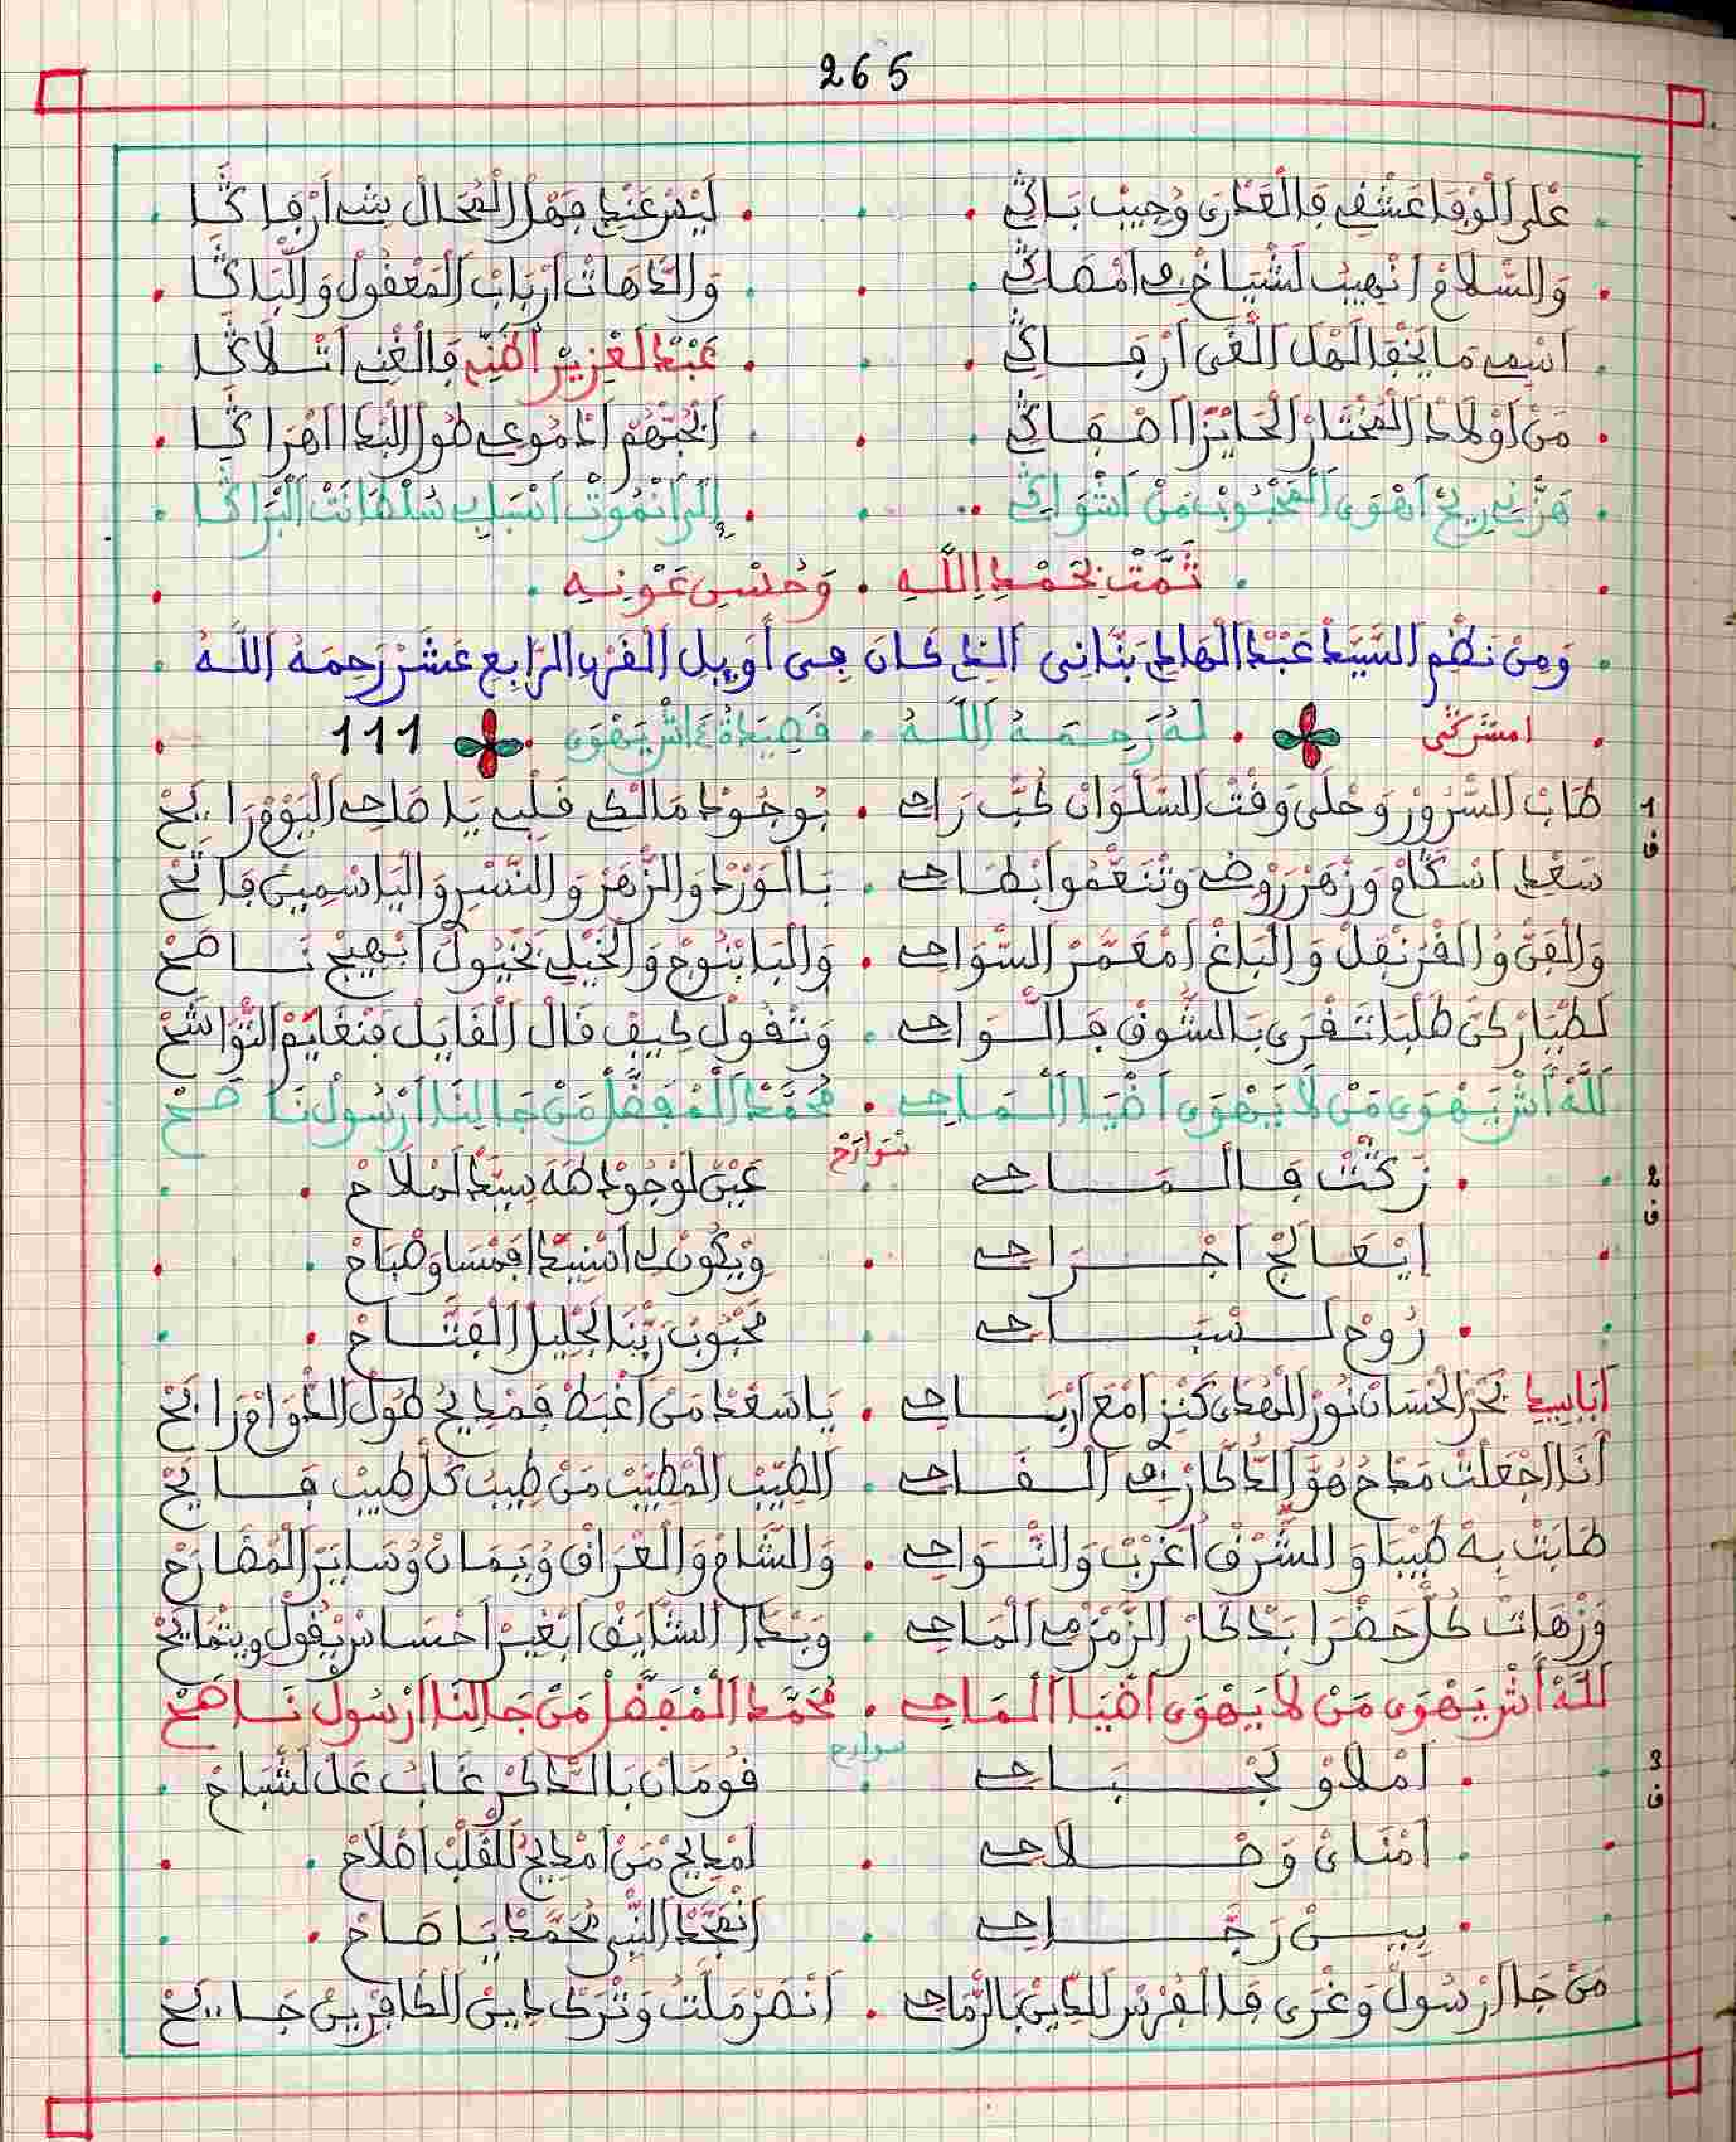 265
عْلَى الْوْفَا عَشْقِي فَالْعَدْرَى وُحِيبْ بَاكِي . لَيْسْ عَنْدِي فَمْلْ الْمُحَالْ شي أَرْفَاكَّا
وَالسّْلَامْ انْهِيبْ لَشْيَاخِي امْضَاكِي . وَالدَّاهَاتْ أَرْبَابْ الْمَعْقُولْ وَالْبَاكَّا
اسْمِي مَا يَخْفَى لَهْلَ الْقَى أَرْفَاكِي . عَبْدْ لَعْزِيزْ الْمَنِي فَالْغْنِي اتْلَاكَّا
مَنْ أَوْلَادْ الْمُخْتَارْ الْحَايْزَا اصْفَاكِي . الْجُبّْهُمْ ادْمُوعِي طُولْ الْبْدَا اهْرَاكَّا
هَزّْنِي رِيحْ أَهْوَى الْمَحْبُوبْ مَنْ اشْوَاكِي . إِلَى انْمُوتْ اسْبَابِي سُلْطَانَتْ الْبْرَاكَّا
تَمَّتْ بِحَمْدِ اللَّهِ . وَحُسْنِ عَوْنِهِ
وَمِنْ نَظْمِ السَّيِّدْ عَبْدْ الْهَادِي بَنَّانِي الذي كَانَ فِي أَوَيِلِ الْقَرْنِ الرَّابِعِ عَشَرْ رَحِمَهُ اللَّهُ
امشرقي . لَهُ رَحِمَهُ اللَّهُ . قَصِيدَةُ اشْ يَهْوَى 111
1 ف طَابْ السُّرُورْ وَحْلَى وَقْتْ السَّلْوَانْ طَبّْ رَاحِي . بُوجُودْ مَالَكْ قَلْبِي يَا صَاحِي الْيَوْمْ رَابَحْ
سَعْدِي اسْكَامْ وَزْهَرْ رَوْضِي وَتْنَعّْمُوا ابْطَاحِي . بَالْوَرْدْ وَالزّْهَرْ وَالنَّسْرِ وَالْيَاسْمِينْ فَاتَحْ
وَالْقَنّْ وُالْقُرُنْفَلْ وَالْبَاغْ امْعَمَّرْ السّْوَاحِي . وَالْبَابُنُّوجْ وَالْخَيْلِي بَخْيُولْ ابْهِيجْ نَاصَحْ
لَطْيَارْ كَنّْ طَلْبَا تَقْرَى بَالشُّوقْ فَالْوَاحِي . وَتْقُولْ كِيفْ قَالْ الْقَايَلْ فَنْغَايَمْ التّْوَاشَحْ
لَلَّهْ اشْ يَهْوَى مَنْ لَا يَهْوَى اضْيَا الْمَاحِي . مُحَمَّدْ الْمْفَضَّلْ مَنْ جَا لِنَا ارْسُولْ نَاصَحْ
سْوَارَحْ
2 ف زَكَّتْ فَالْمَاحِي عَيْنْ لَوْجُودْ طَهَ سِيدْ لَمْلَاحْ
ايْعَالَجْ اجْرَاحِي وَيْكُونْ لِي اسْنِيدْ افْمْسَا وَصْبَاحْ
رُوحْ لَشْبَاحِي مَحْبُوبْ رَبّْنَا الْجْلِيلْ الْفَتَّاحْ
أَيَا سِيدِي بَحْرْ الْحْسَانْ نُورْ الْهْدَى كَنْزِ امْعَ ارْبَاحِي . يَا سَعْدْ مَنْ اغْبَطْ فَمْدِيحُ طُولْ الدّْوَامْ رَابَحْ
أَنَا اجْعَلْتْ مَدْحُ هُوَّ الدّْكَارْ فِي الْقَاحِي . الطِّيبْ الْمْطَيَّبْ مَنْ طِيبُ كُلّْ طِيبْ فَايَحْ
طَابَتْ بِهْ طَيْبَا وَالشَّرْقْ اغْرَبْ وَالنّْوَاحِي . وَالشَّامْ وَالْعْرَاقْ وُيَمَانْ وُسَايَرْ الْمْضَارَحْ
وَزْهَاتْ كُلّْ حَضْرَا بَدْكَارْ الزَّمْزْمِي الْمَاحِي . وَبْدَا الشَّايَقْ ابْغِيرْ احْسَاسْ يْقُولْ ويتْمَايَحْ
لَلَّهْ اشْ يَهْوَى مَنْ لَا يَهْوَى اضْيَا الْمَاحِي . مُحَمَّدْ الْمْفَضَّلْ مَنْ جَا لِنَا ارْسُولْ نَاصَحْ
سوارح
3 ف امْلَاوْ لَجْبَاحِي قُومَانْ بَالدّْكَرْ غَابْ عَلْ لَشْبَاحْ
امْنَايْ وَصْلَاحِي امْدِيحْ مَنْ امْدِيحُ لَلْقَلْبْ اصْلَاحْ
بِيهْ رَجَّاحِي انْمَجَّدْ النّْبِي مُحَمَّدْ يَا صَاحْ
مَنْ جَا ارْسُولْ وَغْزَى فَالْفُرْسْ لَلدِّينْ بَالرّْمَاحِي . انْصَرْ مَلّْتُ وَتْرَكْ دِينْ الْكَافْرِينْ جَايَحْ